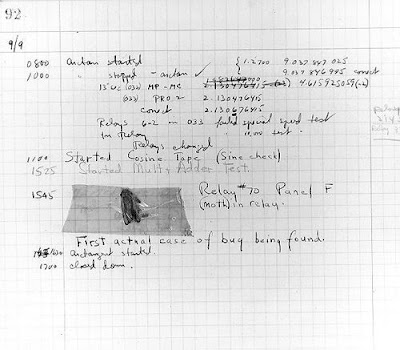 92
9/9
0800 Antan started
1000 " stopped - antan ✓ { 1.2700 9.037 847 025
9.037 846 995 correct
13"UC (032) MP - MC 2.130476415 (-3) 4.615925059(-2)
(033) PRO 2 2.130476415
correct 2.130676415
Relays 6-2 in 033 failed special speed test
in Relay 10.000 test.
Relays changed
1100 Started Cosine Tape (Sine check)
1525 Started Multi Adder Test.
1545 Relay #70 Panel F
(moth) in relay.
First actual case of bug being found.
1630 antangent started.
1700 closed down.